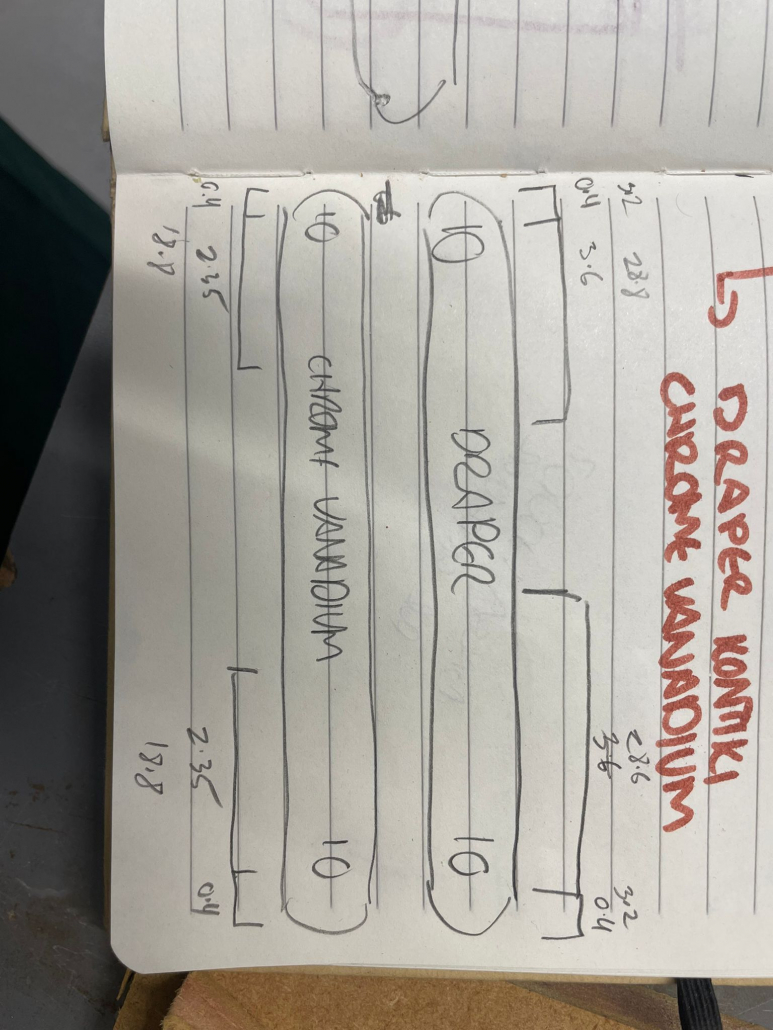 ↳ DRAPER KONTIKI
CHROME VANADIUM
3.2 28.8 28.6 3.2
0.4 3.6 3.6 0.4
10 DRAPER 10
10 CHROME VANADIUM 10
0.4 2.35 2.35 0.4
18.8 18.8